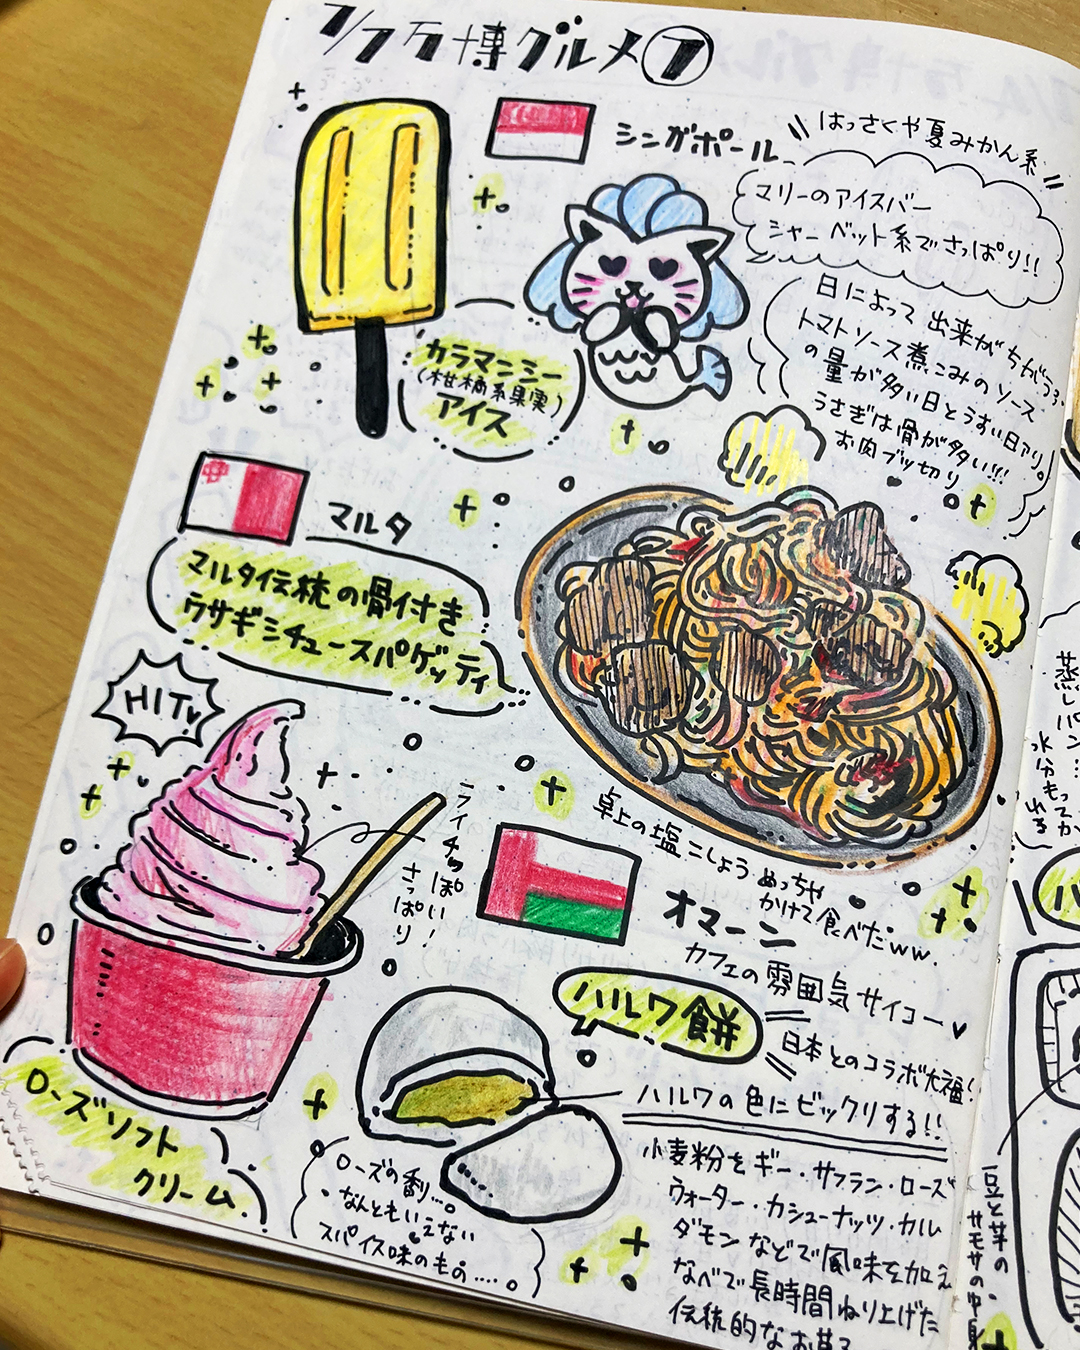 7/7万博グルメ⑦
シンガポール
はっさくや夏みかん系
マリーのアイスバー
シャーベット系でさっぱり!!
カラマンシー
(柑橘系果実)
アイス
日によって出来がちがう。
トマトソース煮こみのソース
の量が多い日とうすい日アリ。
うさぎは骨が多い!!!
お肉ブツ切り
マルタ
マルタ伝統の骨付き
ウサギシチュースパゲッティ
HIT
ライチっぽい!
さっぱり
卓上の塩こしょうめっちゃ
かけて食べたww.
オマーン
カフェの雰囲気サイコー♥
ハルワ餅
日本とのコラボ大福!
ハルワの色にビックリする!!
ローズソフト
クリーム
ローズの香り…。
なんともいえない
スパイス味のもの….
小麦粉をギー・サフラン・ローズ
ウォーター・カシューナッツ・カル
ダモンなどで風味を加え
なべで長時間ねり上げた
伝統的なお菓子
蒸しパン…
水分もってか
れる
豆と芋の
サモサの中身